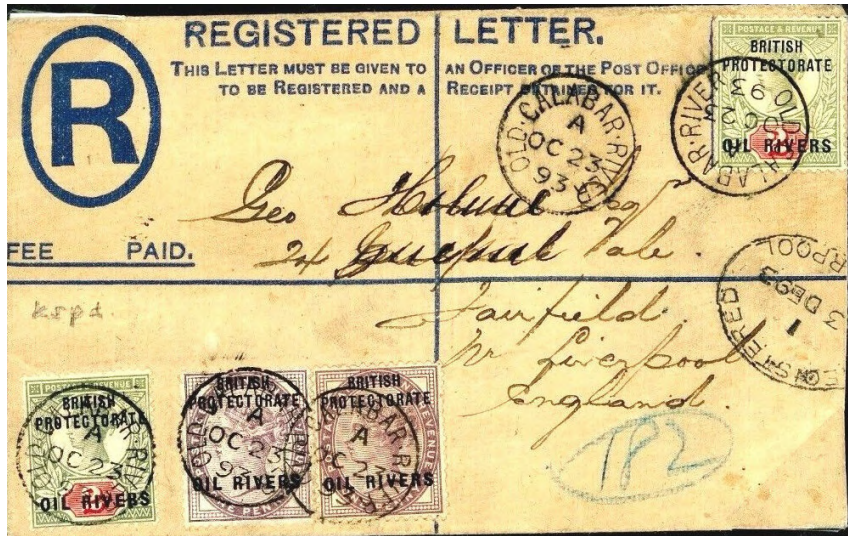 REGISTERED LETTER.
THIS LETTER MUST BE GIVEN TO AN OFFICER OF THE POST OFFICE
TO BE REGISTERED AND A RECEIPT OBTAINED FOR IT.
R
FEE PAID.
POSTAGE & REVENUE
BRITISH
PROTECTORATE
OIL RIVERS
OLD CALABAR RIVER
OC 23
93
OLD·CALABAR·RIVER
A
OC 23
93
Geo Esqr
24 Vale
Fairfield
nr Liverpool
England.
REGISTERED
1
3 DE 93
LIVERPOOL
TP2
POSTAGE & REVENUE
BRITISH
PROTECTORATE
OIL RIVERS
A
OC 23
BRITISH
PROTECTORATE
OIL RIVERS
ONE PENNY
A
OC 23
93
BRITISH
PROTECTORATE
OIL RIVERS
CALABAR·RIVER
A
OC 23